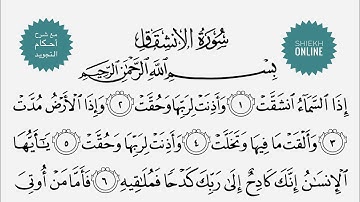 مع شرح
أحكام
التجويد
سُورَةُ الِانْشِقَاقِ
SHIEKH
ONLINE
بِسْمِ اللَّهِ الرَّحْمَٰنِ الرَّحِيمِ
إِذَا ٱلسَّمَآءُ ٱنشَقَّتْ ١ وَأَذِنَتْ لِرَبِّهَا وَحُقَّتْ ٢ وَإِذَا ٱلْأَرْضُ مُدَّتْ
٣ وَأَلْقَتْ مَا فِيهَا وَتَخَلَّتْ ٤ وَأَذِنَتْ لِرَبِّهَا وَحُقَّتْ ٥ يَٰٓأَيُّهَا
ٱلْإِنسَٰنُ إِنَّكَ كَادِحٌ إِلَىٰ رَبِّكَ كَدْحًا فَمُلَٰقِيهِ ٦ فَأَمَّا مَنْ أُوتِيَ